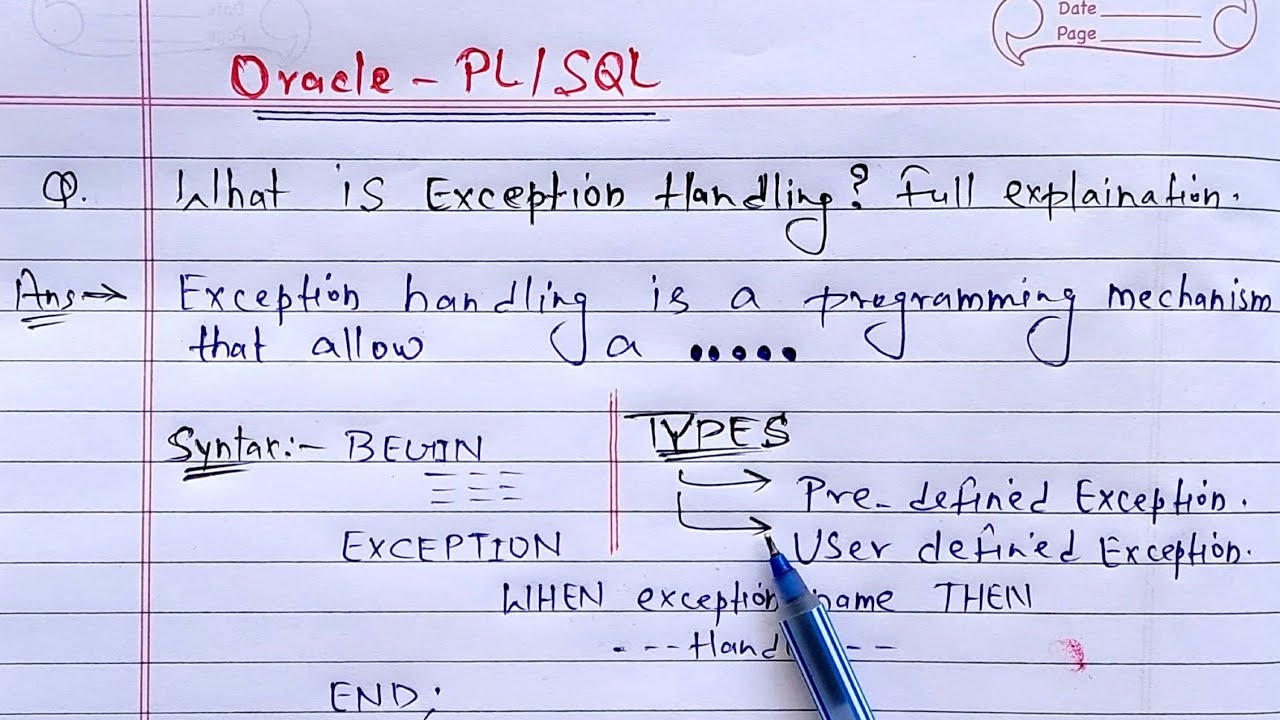 Date
Page
Oracle - PL/SQL
Q. What is Exception Handling? Full explaination.
Ans→ Exception handling is a programming mechanism
that allow a .....
Syntax:- BEGIN
EXCEPTION
WHEN exception name THEN
END;
TYPES
Pre-defined Exception.
User defined Exception.